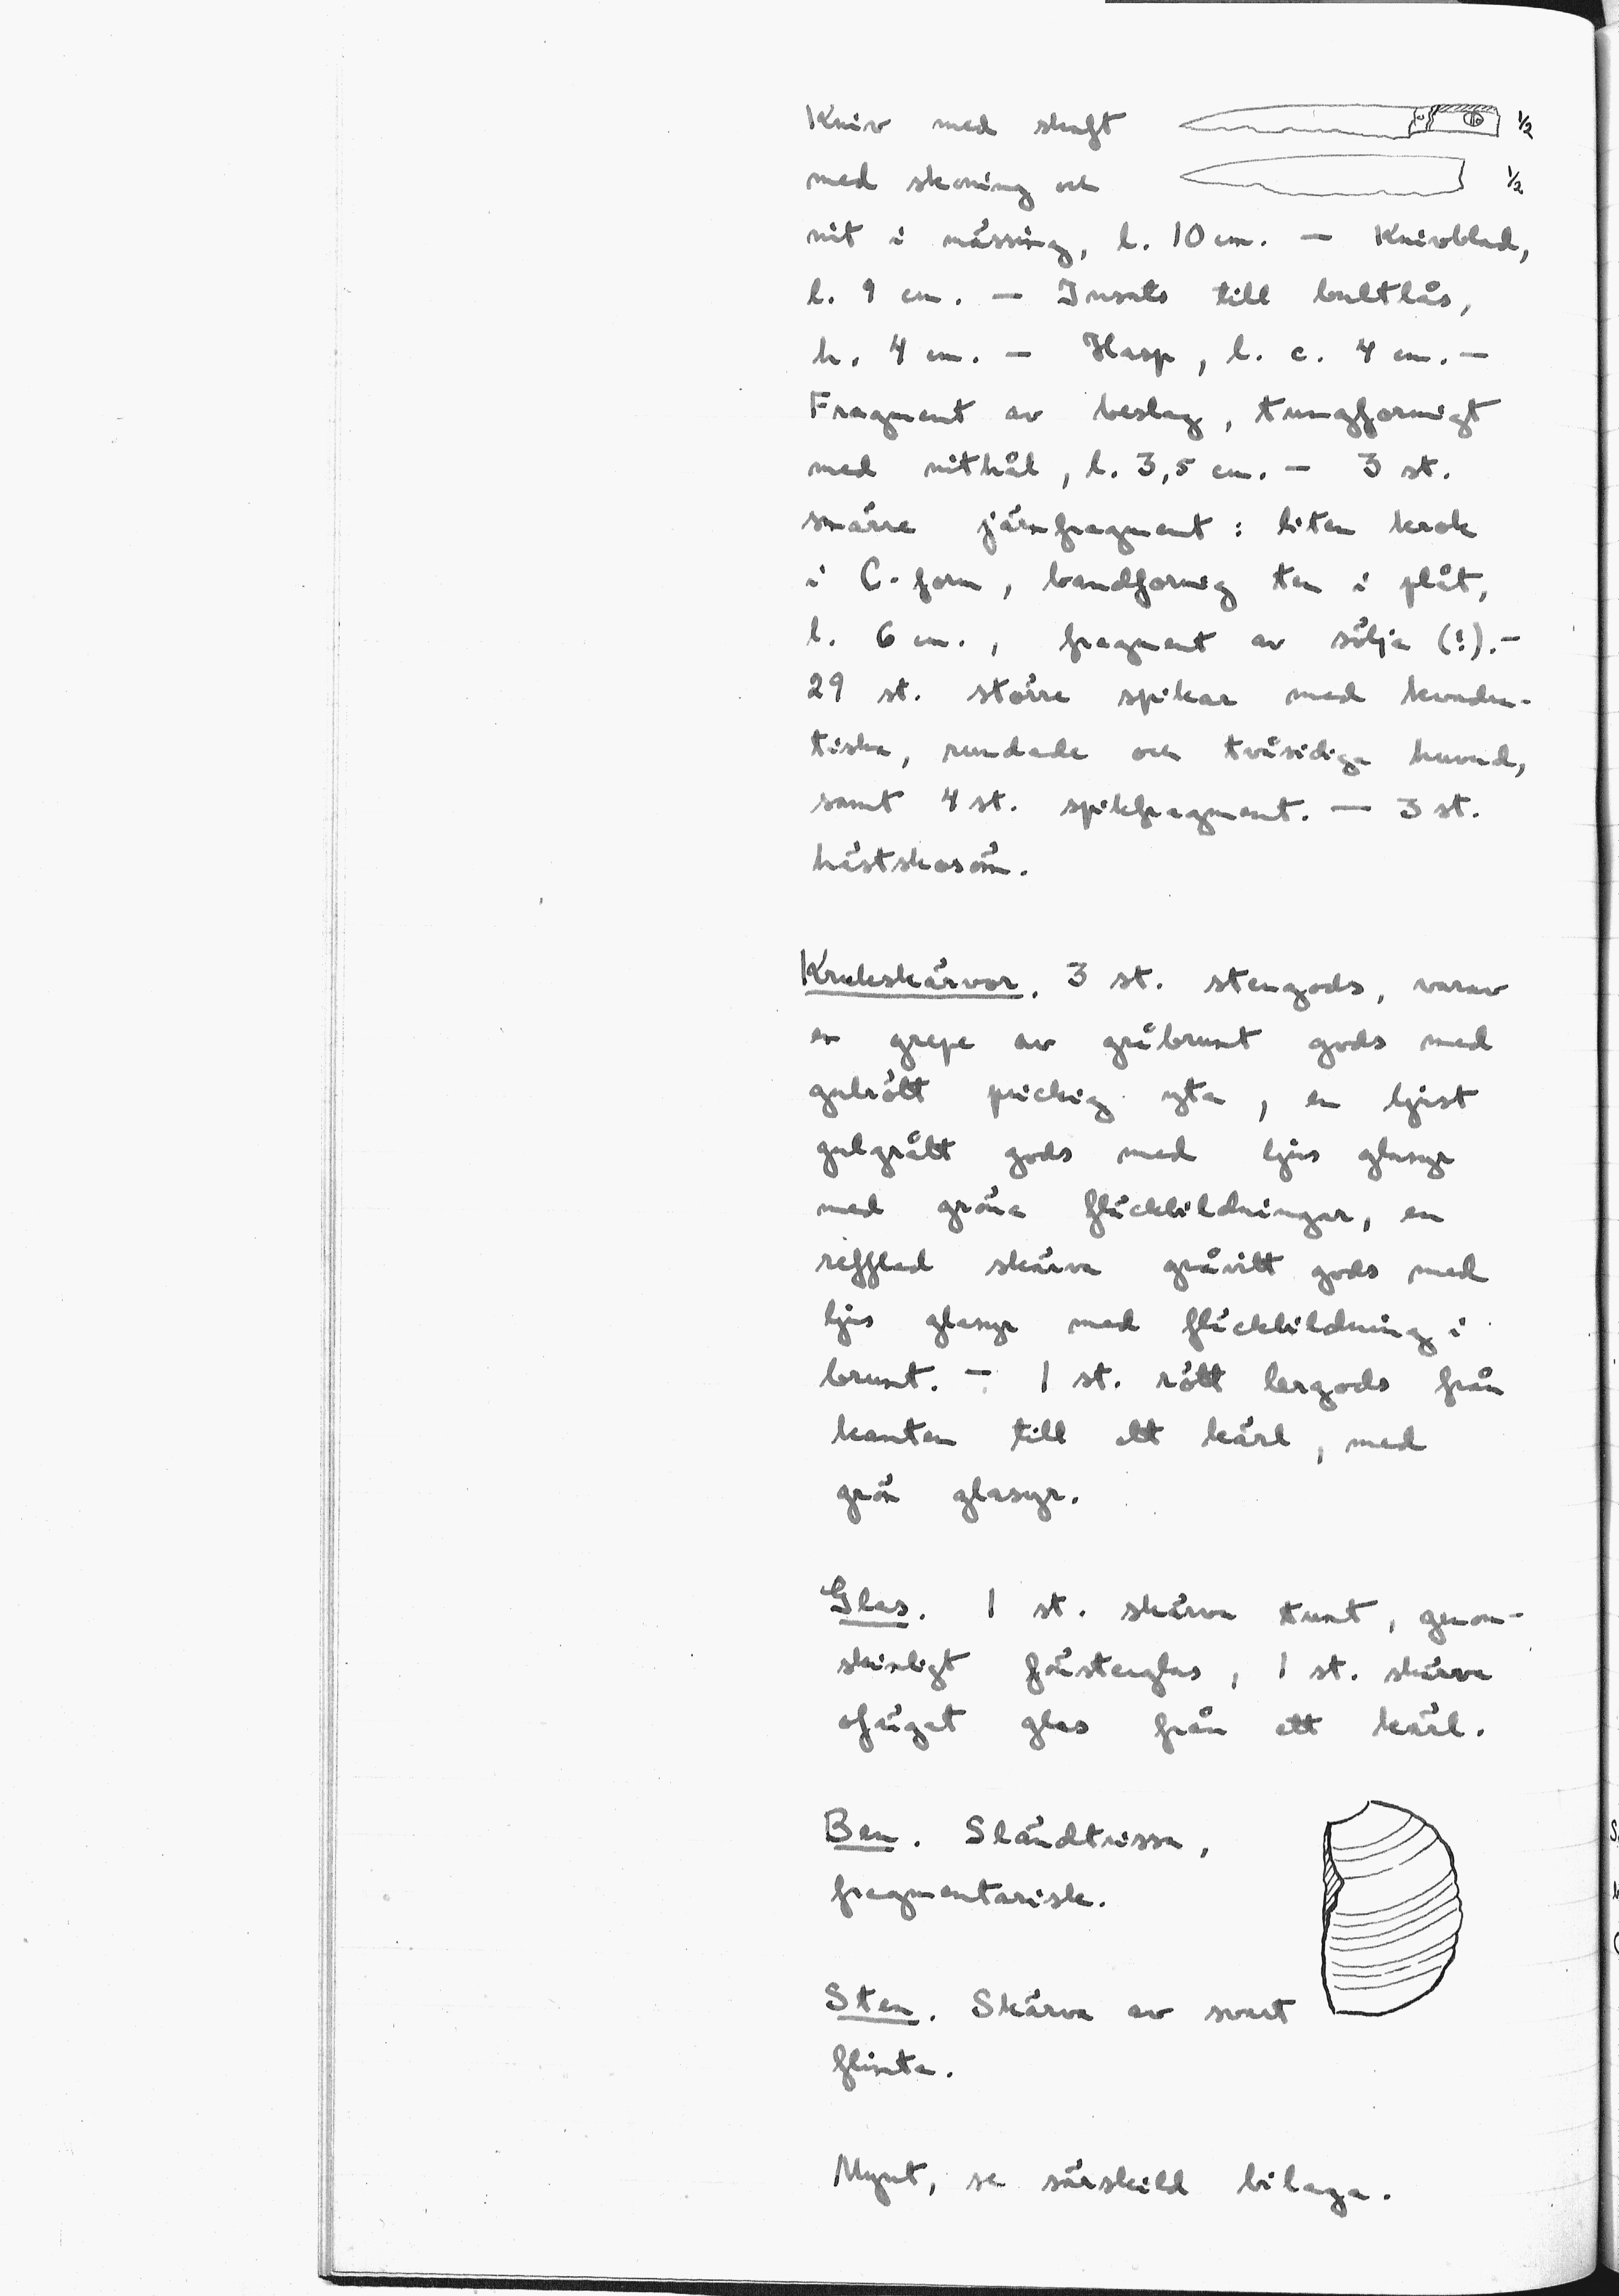 Kniv med skaft
½
med skoning och
½
nit i mässing, l. 10 cm. — Knivblad,
l. 9 cm. — Insats till bultlås,
h. 4 cm. — Hasp, l. c. 4 cm. —
Fragment av beslag, tungformigt
med nithål, l. 3,5 cm. — 3 st.
smärre järnfragment : liten krok
i C-form, bandformig ten i plåt,
l. 6 cm., fragment av sölja (?). —
29 st. större spikar med kvadra-
tiska, rundade och tvåsidiga huvud,
samt 4 st. spikfragment. — 3 st.
hästskosöm.
Krukskärvor. 3 st. stengods, varav
en grepe av gråbrunt gods med
gulrött prickig yta, en ljust
gulgrått gods med ljus glasyr
med gröna fläckbildningar, en
refflad skärva gråvitt gods med
ljus glasyr med fläckbildning i
brunt. — 1 st. rött lergods från
kanten till ett kärl, med
grön glasyr.
Glas. 1 st. skärva tunt, genom-
skinligt fönsterglas, 1 st. skärva
ofärgat glas från ett kärl.
Ben. Sländtrissa,
fragmentarisk.
Sten. Skärva av svart
flinta.
Mynt, se särskild bilaga.